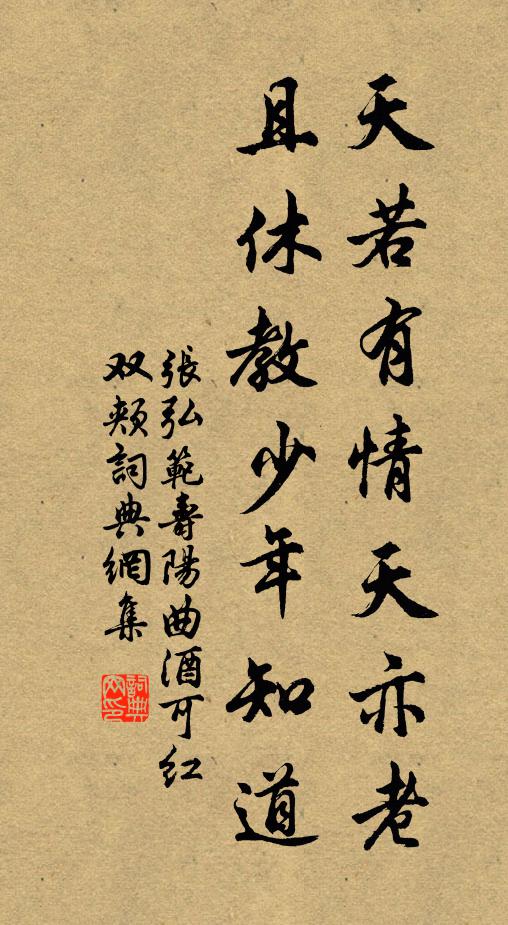 天若有情天亦老
且休教少年知道
張弘範壽陽曲酒可紅
双頰詞典網集
詞典网印